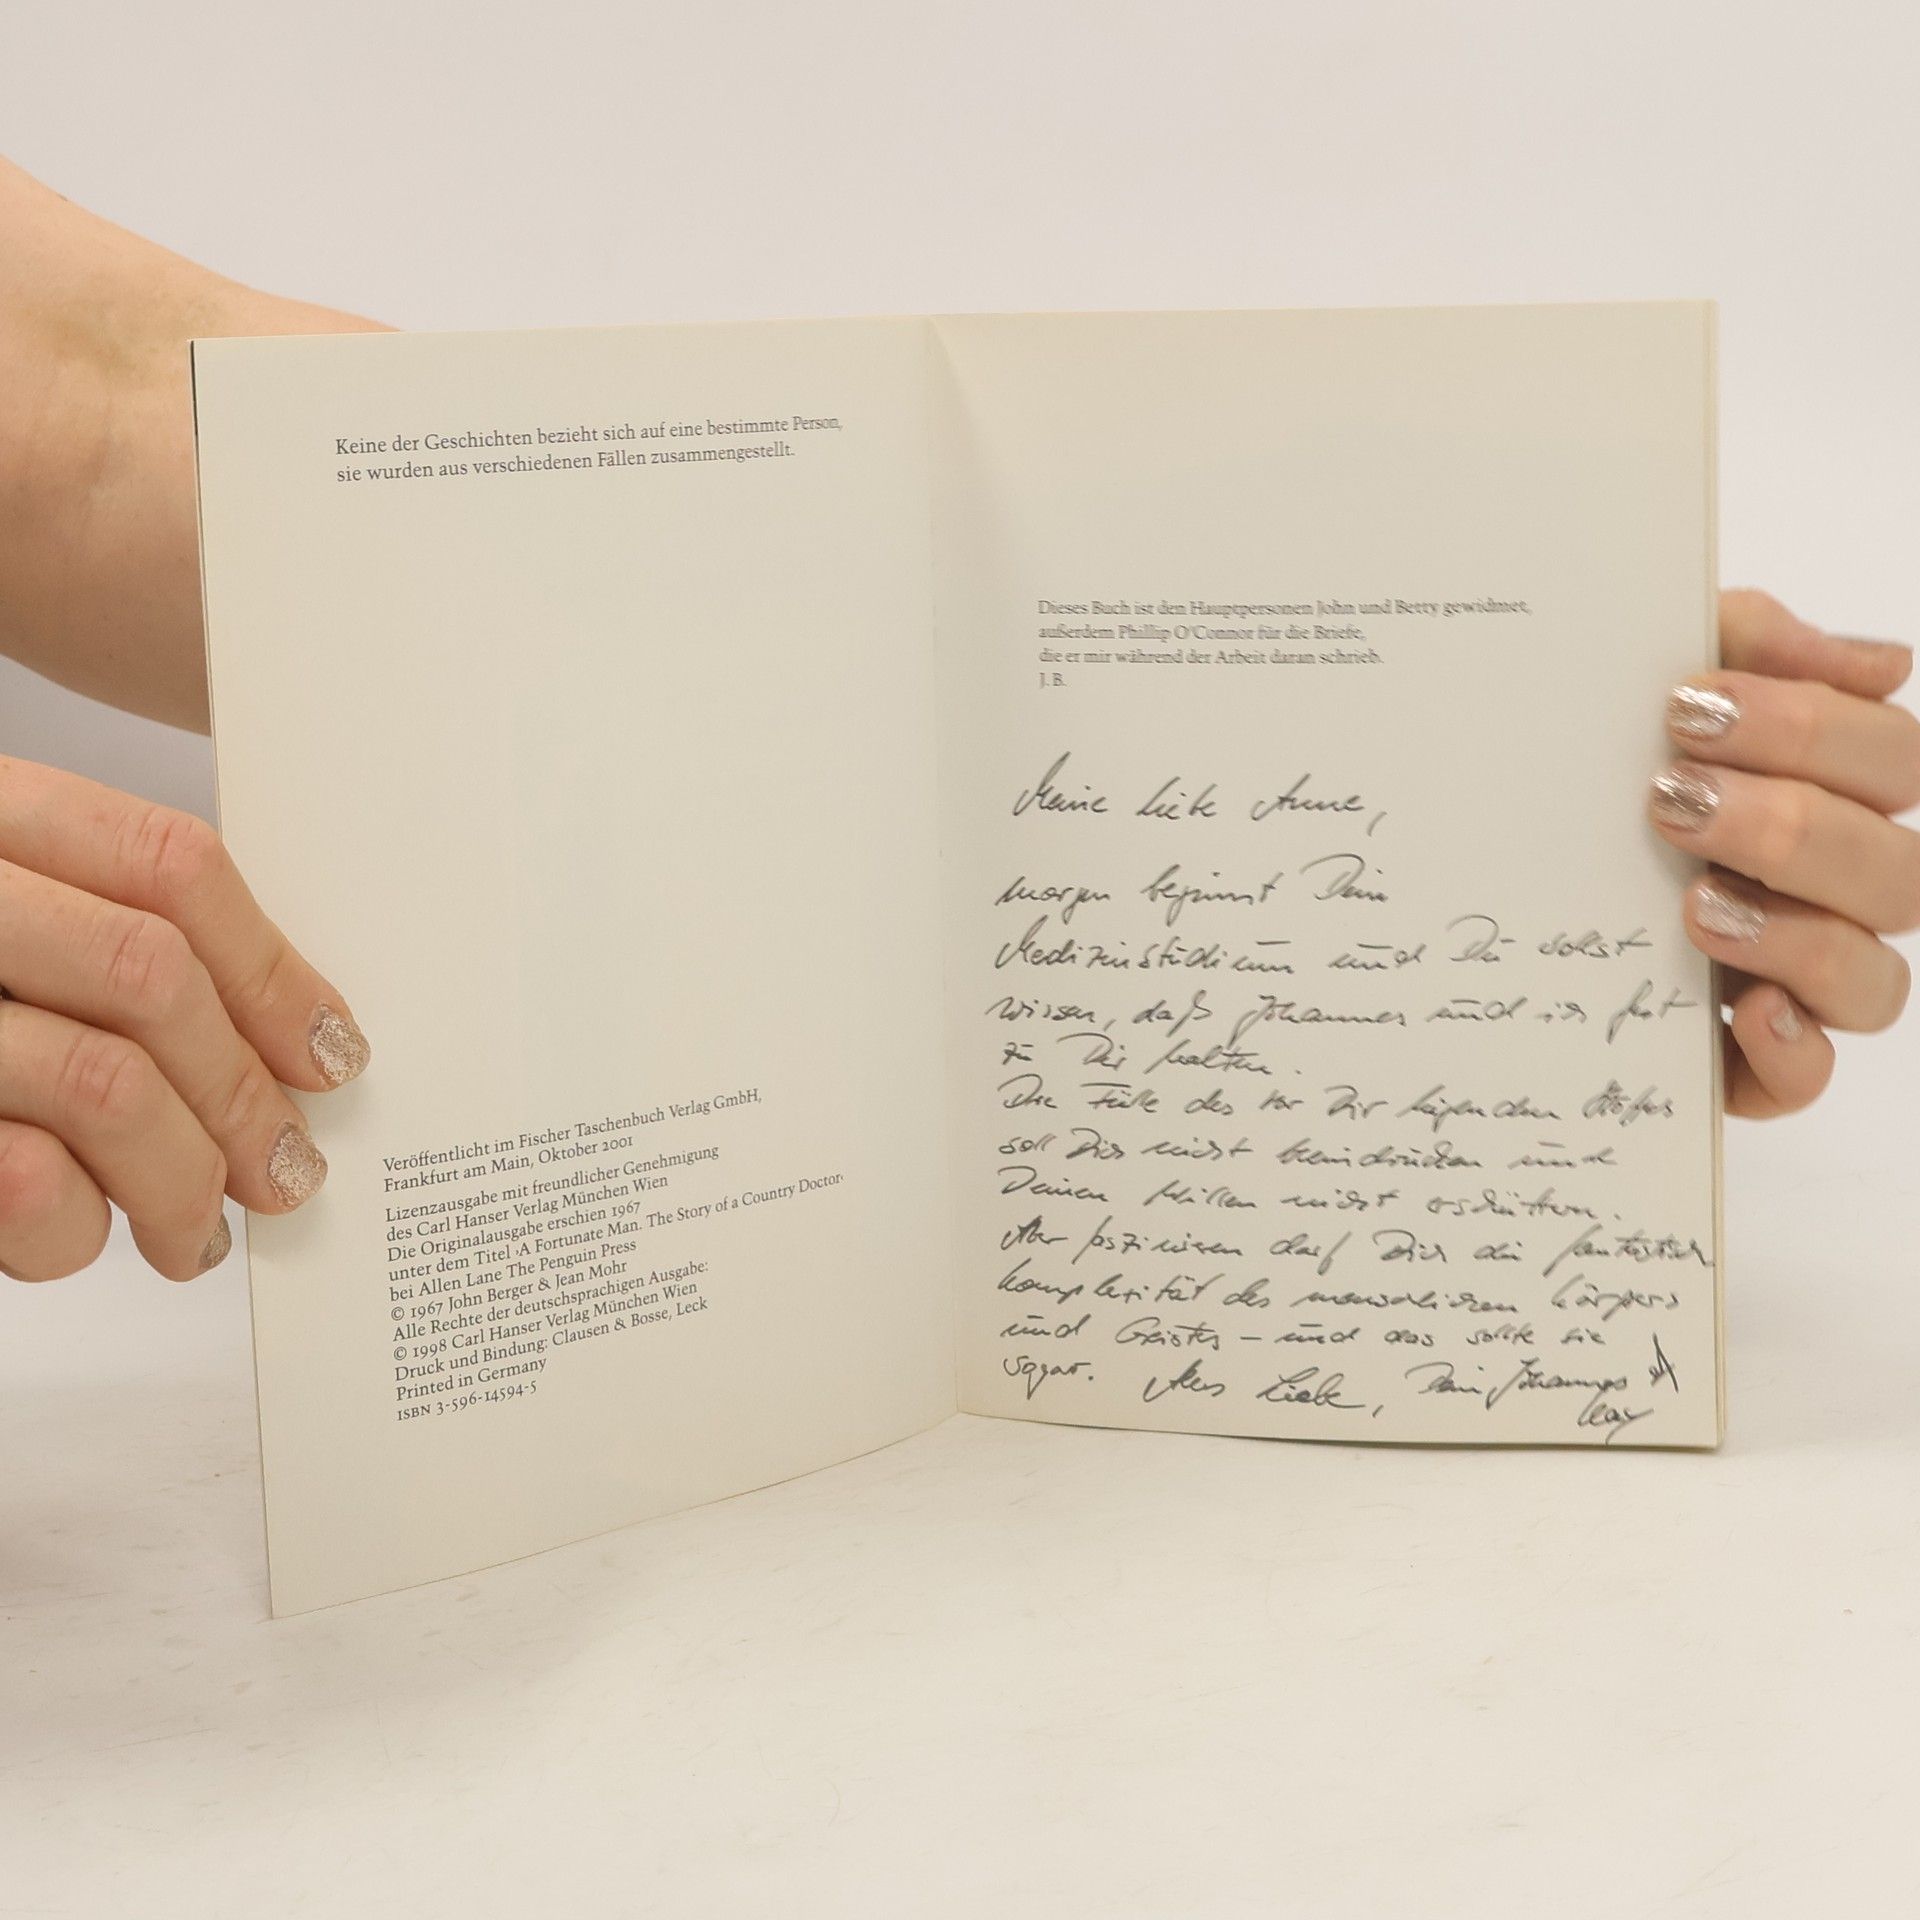 Keine der Geschichten bezieht sich auf eine bestimmte Person,
sie wurden aus verschiedenen Fällen zusammengestellt.
Veröffentlicht im Fischer Taschenbuch Verlag GmbH,
Frankfurt am Main, Oktober 2001
Lizenzausgabe mit freundlicher Genehmigung
des Carl Hanser Verlag München Wien
Die Originalausgabe erschien 1967
unter dem Titel ›A Fortunate Man. The Story of a Country Doctor‹
bei Allen Lane The Penguin Press
© 1967 John Berger & Jean Mohr
Alle Rechte der deutschsprachigen Ausgabe:
© 1998 Carl Hanser Verlag München Wien
Druck und Bindung: Clausen & Bosse, Leck
Printed in Germany
ISBN 3-596-14594-5
Dieses Buch ist den Hauptpersonen John und Betty gewidmet,
außerdem Phillip O'Connor für die Briefe,
die er mir während der Arbeit daran schrieb.
J. B.
Meine liebe Anne,
morgen beginnt Dein
Medizinstudium und Du sollst
wissen, daß Johannes und ich fest
zu Dir halten.
Die Fülle des vor Dir liegenden Stoffes
soll Dich nicht beeindrucken und
Deinen Willen nicht erschüttern.
Aber faszinieren darf Dich die
Komplexität des menschlichen Körpers
und Geistes – und das sollte sie
sogar. Alles Liebe, Dein Johannes